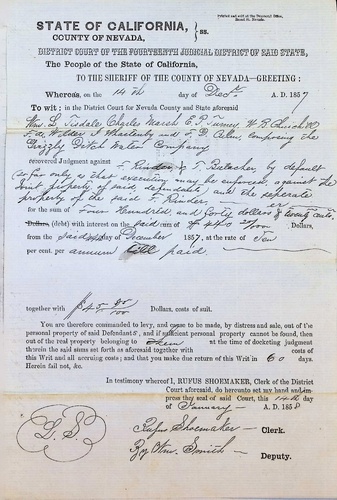 Printed and sold at the Democrat Office,
STATE OF CALIFORNIA, } ss.
COUNTY OF NEVADA,
DISTRICT COURT OF THE FOURTEENTH JUDICIAL DISTRICT OF SAID STATE,
The People of the State of California,
TO THE SHERIFF OF THE COUNTY OF NEVADA—GREETING:
Whereas, on the 14th day of Dect. A. D. 1857
To wit; in the District Court for Nevada County and State aforesaid
Wm. L. Tisdale Charles Marsh E. P. W. R. Church
F. de J. and F. D. composing the
Grizzly Ditch Water Company
recovered Judgment against F. Runder & T. Balacher, by default
(so far only as that execution may be enforced, against the
joint property of said, defendants, and the seperate
property of the said F. Runder.
for the sum of Four Hundred and forty dollars & twenty cents.
Dollars, (debt) with interest on the said sum of $440 20/100 Dollars,
from the said day of December 1857, at the rate of Ten
per cent. per annum till paid.
together with $45 Dollars, costs of suit.
You are therefore commanded to levy, and cause to be made, by distress and sale, out of the
personal property of said Defendants, and if sufficient personal property cannot be found, then
out of the real property belonging to them at the time of docketing judgment
therein the said sums set forth as aforesaid together with costs of
this Writ and all accruing costs; and that you make return of this Writ in 60 days.
Herein fail not, &c.
In testimony whereof I, RUFUS SHOEMAKER, Clerk of the District
Court aforesaid, do hereunto set my hand and im-
press the seal of said Court, this 14th day
of January— A. D. 1858
L. S.
Rufus Shoemaker — Clerk.
By Wm. Smith — Deputy.